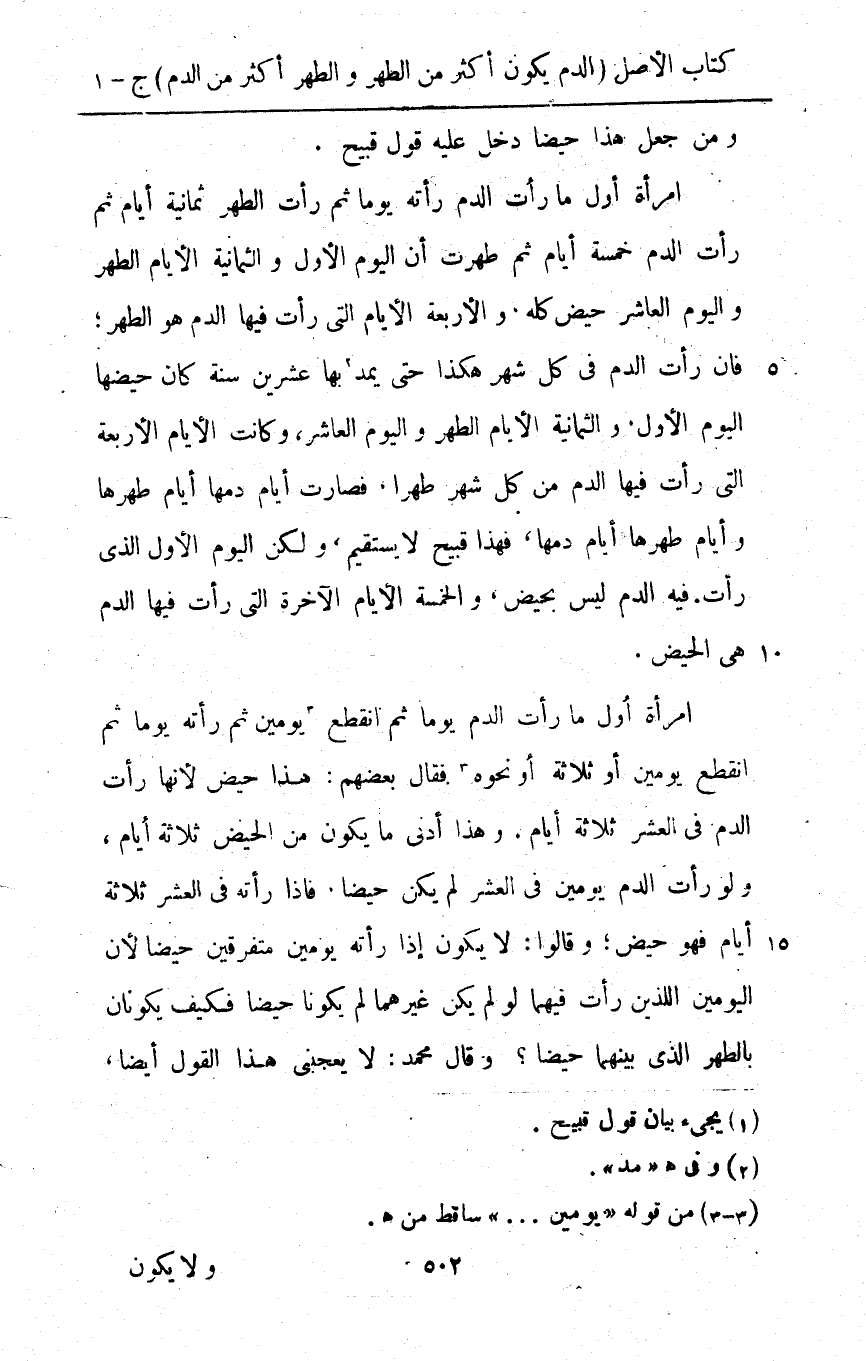 كتاب الأصل (الدم يكون أكثر من الطهر و الطهر أكثر من الدم) ج – ١
و من جعل هذا حيضا دخل عليه قول قبيح .
امرأة أول ما رأت الدم رأته يوما ثم رأت الطهر ثمانية أيام ثم
رأت الدم خمسة أيام ثم طهرت أن اليوم الأول و الثمانية الأيام الطهر
و اليوم العاشر حيض كله ٠ و الأربعة الأيام التى رأت فيها الدم هو الطهر ؛
٥ فان رأت الدم فى كل شهر هكذا حتى يمد٢ بها عشرين سنة كان حيضها
اليوم الأول ٠ و الثمانية الأيام الطهر و اليوم العاشر، وكانت الأيام الأربعة
التى رأت فيها الدم من كل شهر طهرا ، فصارت أيام دمها أيام طهرها
و أيام طهرها أيام دمها ، فهذا قبيح لا يستقيم ، و لكن اليوم الأول الذى
رأت فيه الدم ليس بحيض ، و الخمسة الأيام الآخرة التى رأت فيها الدم
١٠ هى الحيض .
امرأة أول ما رأت الدم يوما ثم انقطع ٣يومين ثم رأته يوما ثم
انقطع يومين أو ثلاثة أو نحوه٣ فقال بعضهم : هـذا حيض لأنها رأت
الدم فى العشر ثلاثة أيام . و هذا أدنى ما يكون من الحيض ثلاثة أيام ،
و لو رأت الدم يومين فى العشر لم يكن حيضا ٠ فاذا رأته فى العشر ثلاثة
١٥ أيام فهو حيض ؛ و قالوا : لا يكون إذا رأته يومين متفرقين حيضا لأن
اليومين اللذين رأت فيهما لو لم يكن غيرهما لم يكونا حيضا فكيف يكونان
بالطهر الذى بينهما حيضا ؟ و قال محمد : لا يعجبنى هـذا القول أيضا ،
(١) يجىء بيان قول قبيح .
(٢) و فى ه « مد » .
(٣–٣) من قوله « يومين ... » ساقط من ه .
٥٠٢
و لا يكون